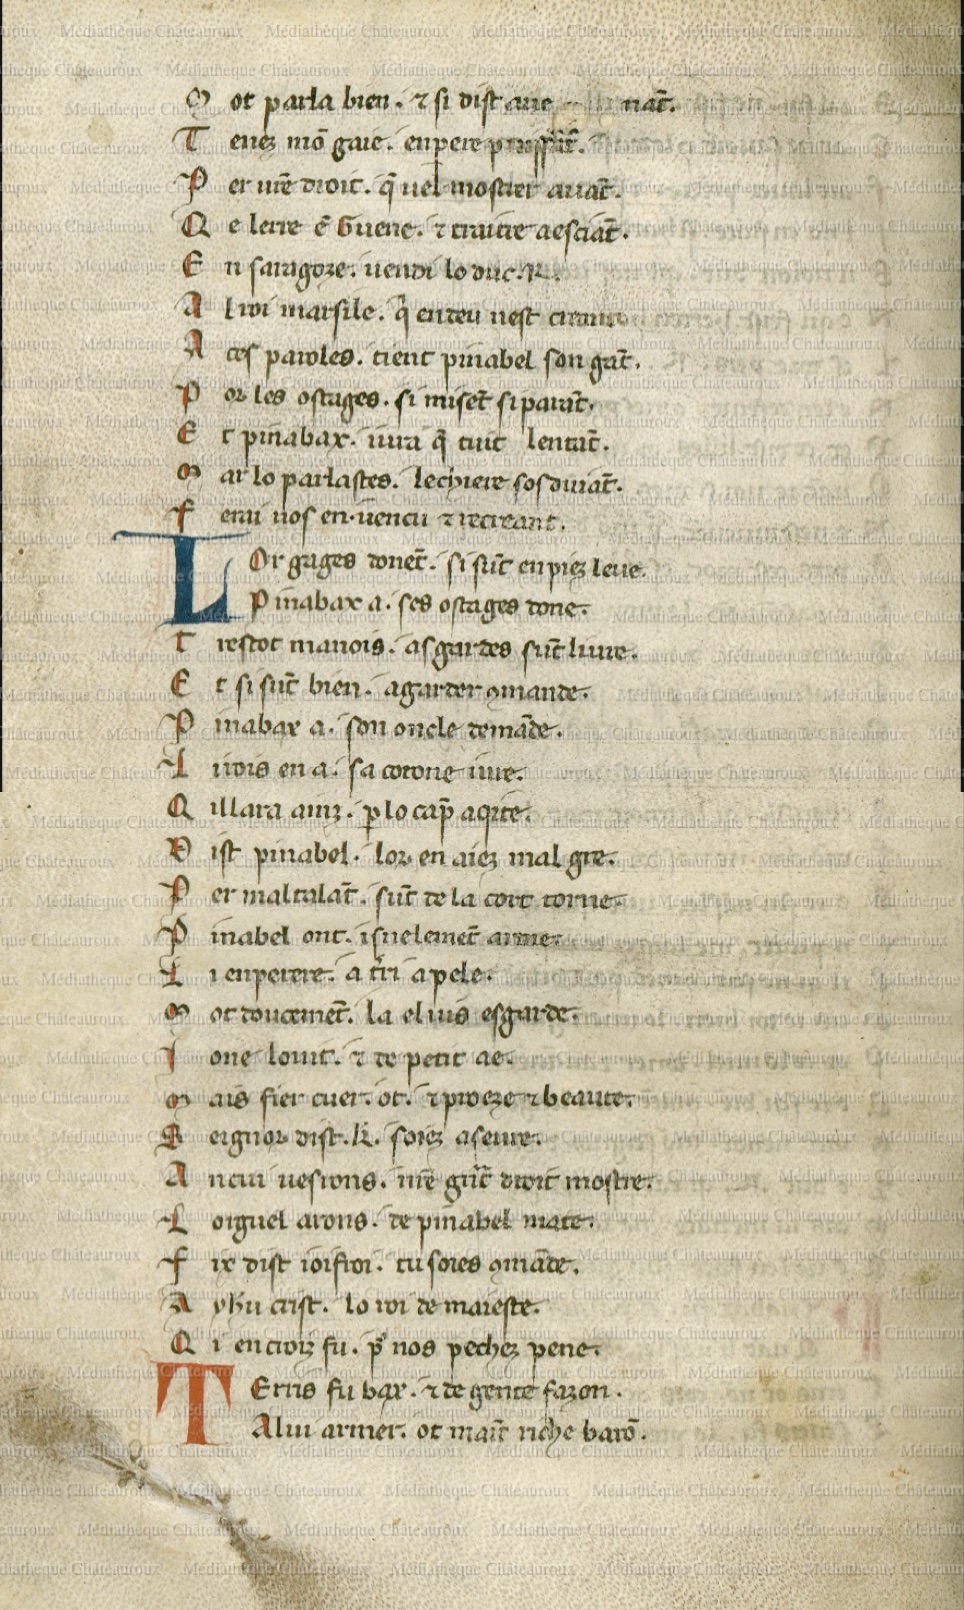 M ot parla bien. ⁊ si dist aue nat̄.
T enez mō gaie. enpere
P er nr̄e droit. q̄ uel mostrer auāt.
Q e lerre ē Guene. ⁊ traitre aesciāt.
E n saragoze. uendi lo duc. R.
A l roi marsile. q̄ en deu nest
A ces paroles. tient pinabel son gāt.
P or les ostages. si misēt si parāt.
E t pinabax. iura q̄ tuit lentāt.
M ar lo parlastes. lechiere sosduiāt.
F erai uos en. uencu ⁊ recreant.
L Or gages donēt. si sūt en piez leue.
P inabax a. ses ostages done.
T restot manois. as gardes sūt liure.
E t si sūt bien. a garder ꝯmande.
P inabax a. son oncle demāde.
L i rois en a. sa corone iure.
Q il lara ainz. ꝑ lo cāp aqite.
D ist pinabel. lor en aiez mal gre.
P er maltalāt. sūt de la cort torne.
P inabel ont. isnelemēt arme.
L i enperere. a tīri apele.
M ot doucemēt. la el uis esgarde.
I one louit. ⁊ de petit ae.
M ais fier cuer. ot. ⁊ proeze ⁊ beaute.
S eignor dist. K. soiez aseure.
A ncui uesrons. nr̄e droit mostre.
L orguel arons. de pinabel mate.
F ix dist ioifroi. tu soies ꝯmāde.
A yhu crist. lo roi de maieste.
Q i en croiz fu. ꝑ nos pechez pene.
T Erris fu bax. ⁊ de gente fazon.
A lui armer. ot maīt riche barō.